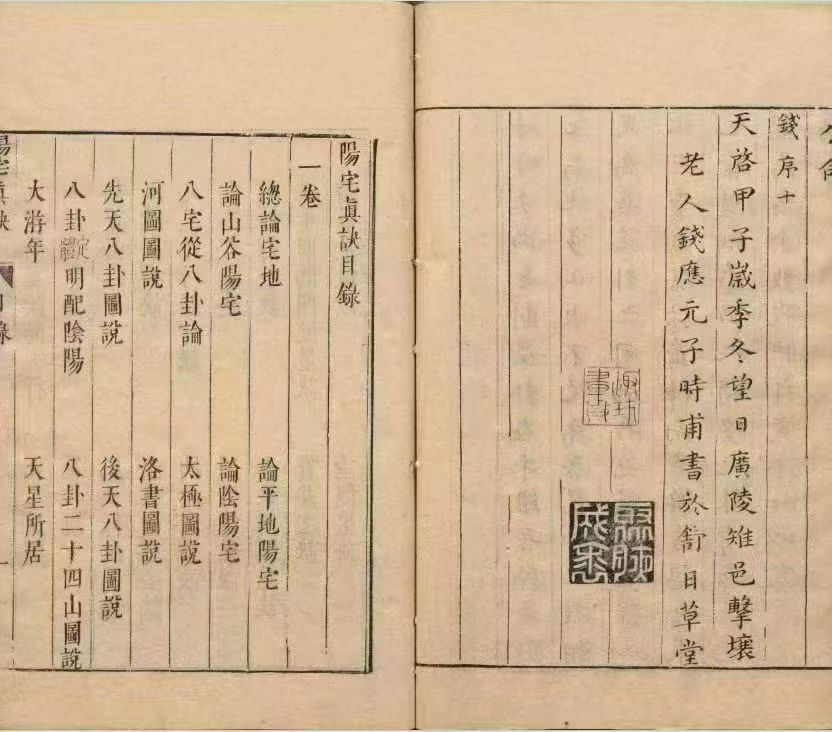 錢序十
天啓甲子歲季冬望日廣陵雉邑擊壤
老人錢應元子時甫書於舒日草堂
陽宅眞訣目錄
一卷
總論宅地　論平地陽宅
論山谷陽宅　論陰陽宅
八宅從八卦論　太極圖說
河圖圖說　洛書圖說
先天八卦圖說　後天八卦圖說
八卦明配陰陽　八卦二十四山圖說
大游年　天星所居
陽宅眞訣　目錄　一